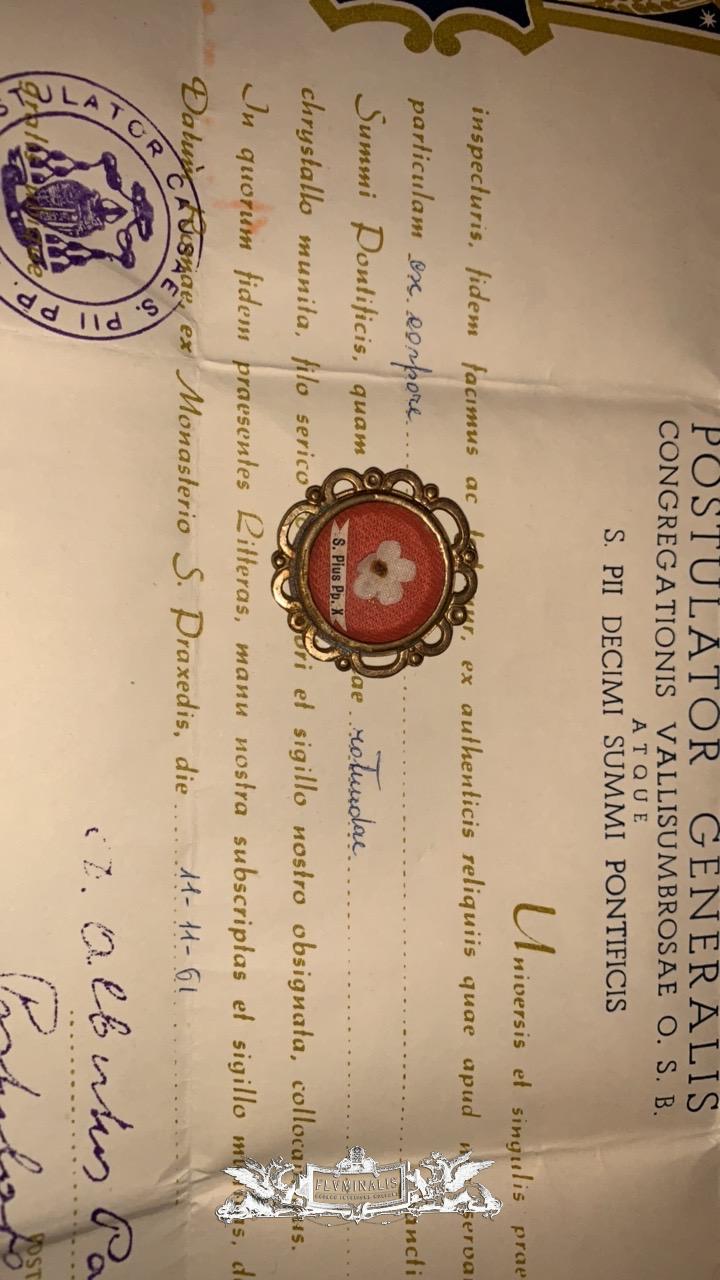 POSTULATOR GENERALIS
CONGREGATIONIS VALLISUMBROSAE O. S. B.
ATQUE
S. PII DECIMI SUMMI PONTIFICIS
Universis et singulis prae
inspecturis, fidem facimus ac ex authenticis reliquiis quae apud
particulam ex corpore
Summi Pontificis, quam rotundae
chrystallo munita, filo serico et sigillo nostro obsignata,
In quorum fidem praesentes Litteras, manu nostra subscriptas et sigillo
Datum Romae, ex Monasterio S. Praxedis, die 11-11-61
S. Pius Pp. X
CAUSAE S. PII PP.
FLVMINALIS